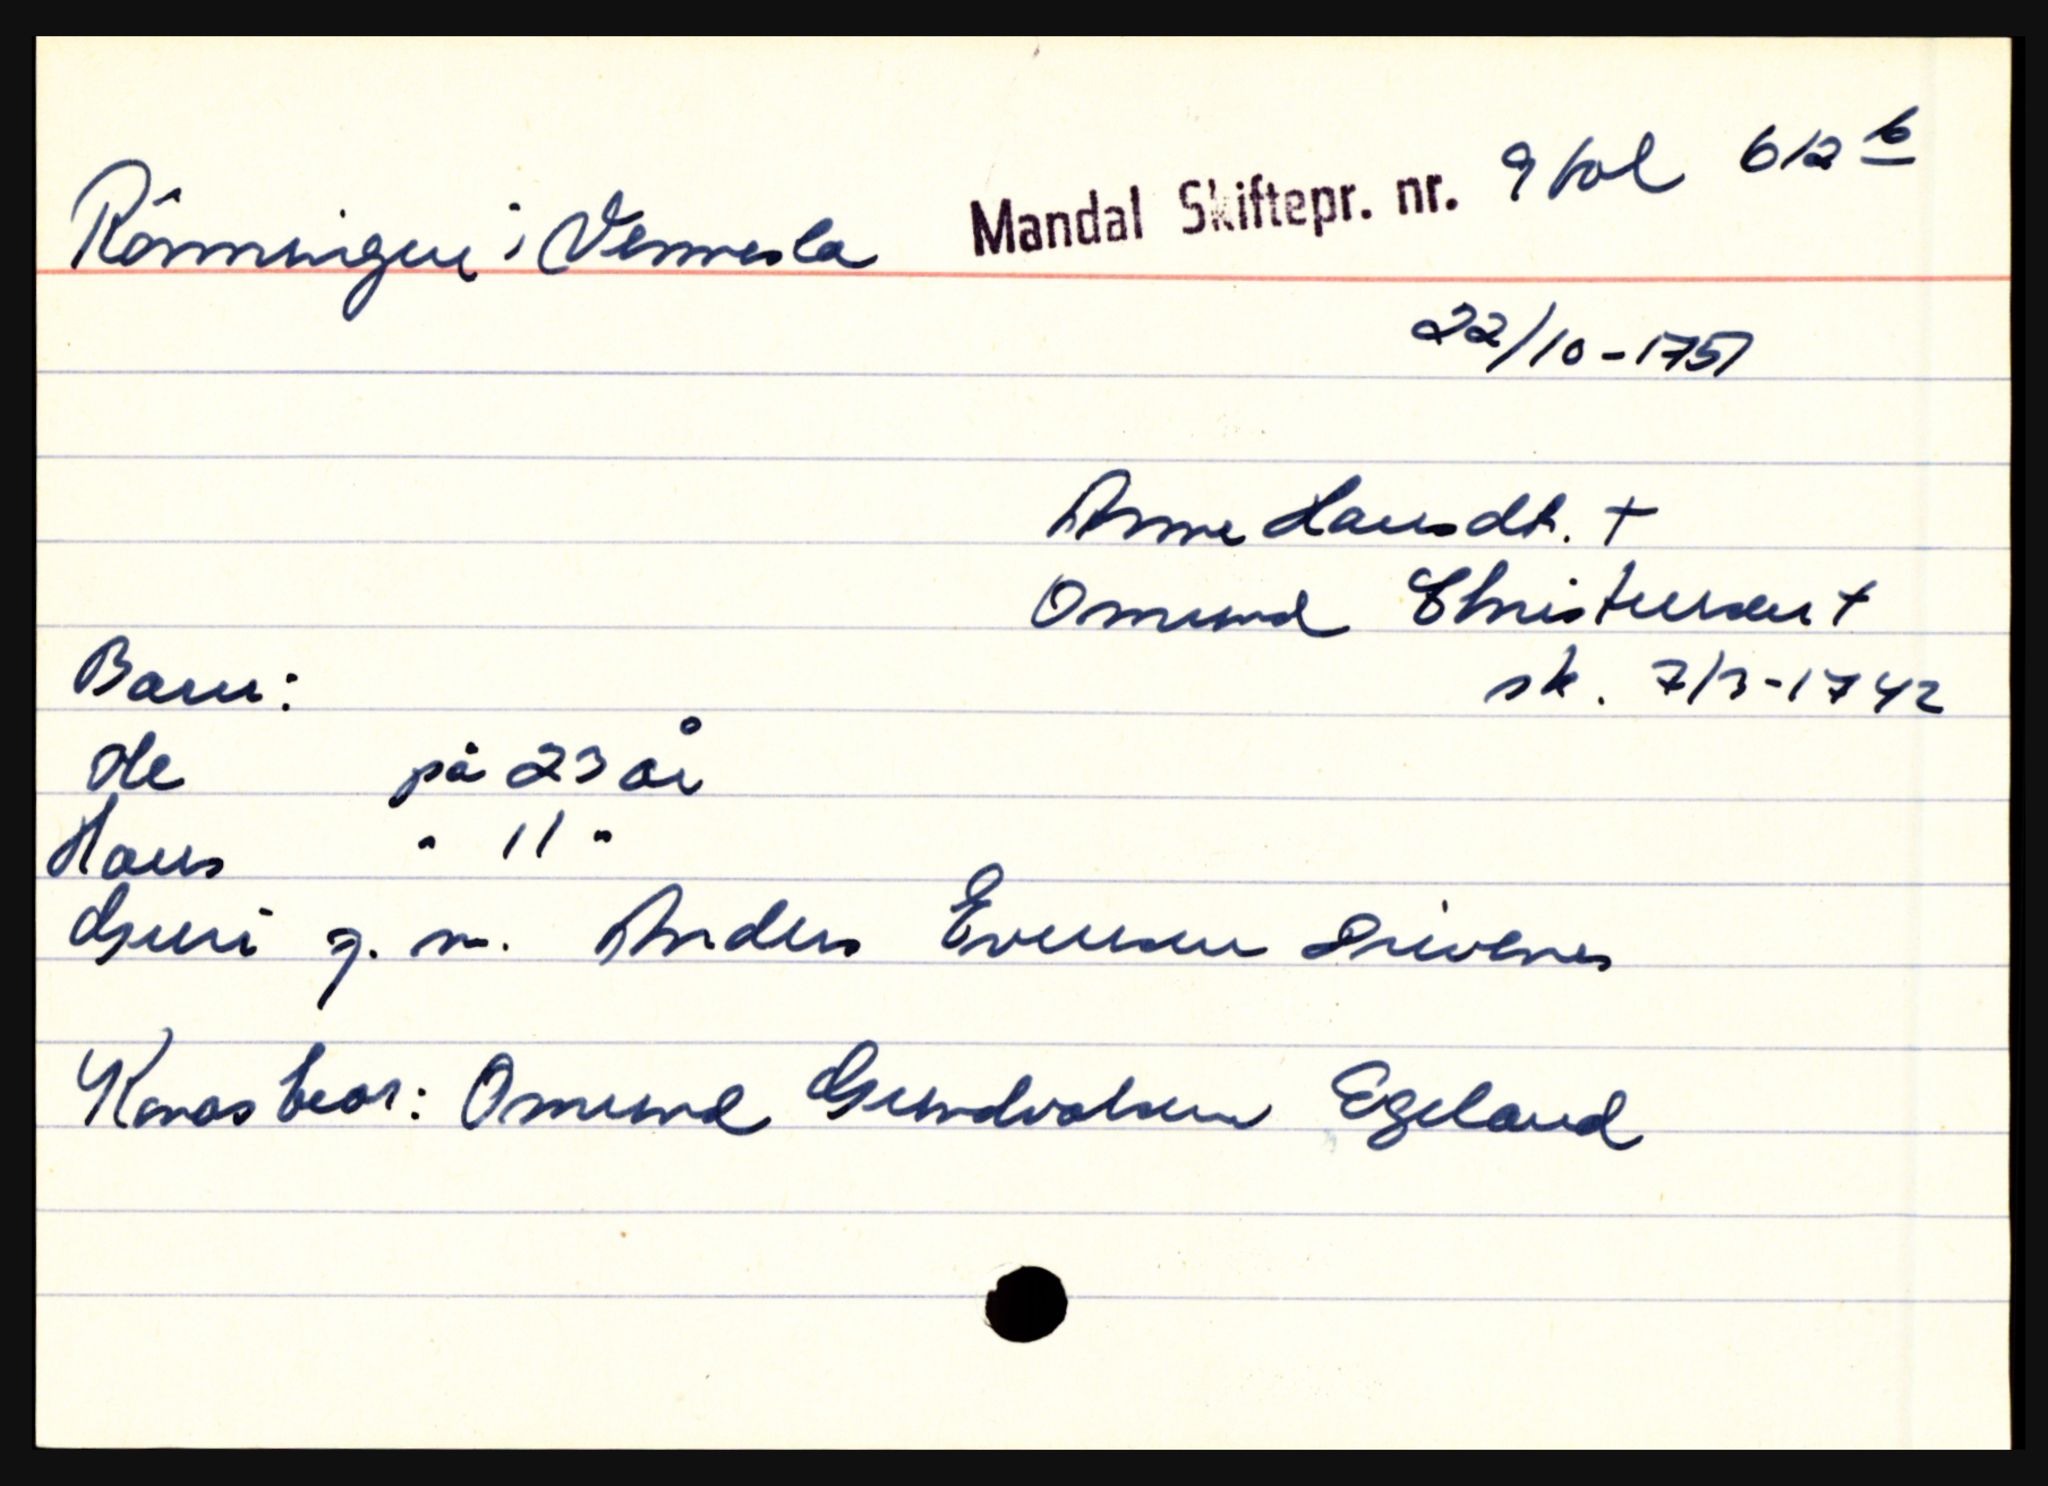 Rönningen i Vennesla Mandal Skiftepr. nr. 9 fol 612 b
22/10-1751
Anne Hansdt. +
Omund Christensen +
Barn: sk. 7/3-1742
Ole på 23 år
Hans " 11 "
Guri g. m. Anders Evensen Drivenes
Kovas beor: Omund Gundvalsen Egeland